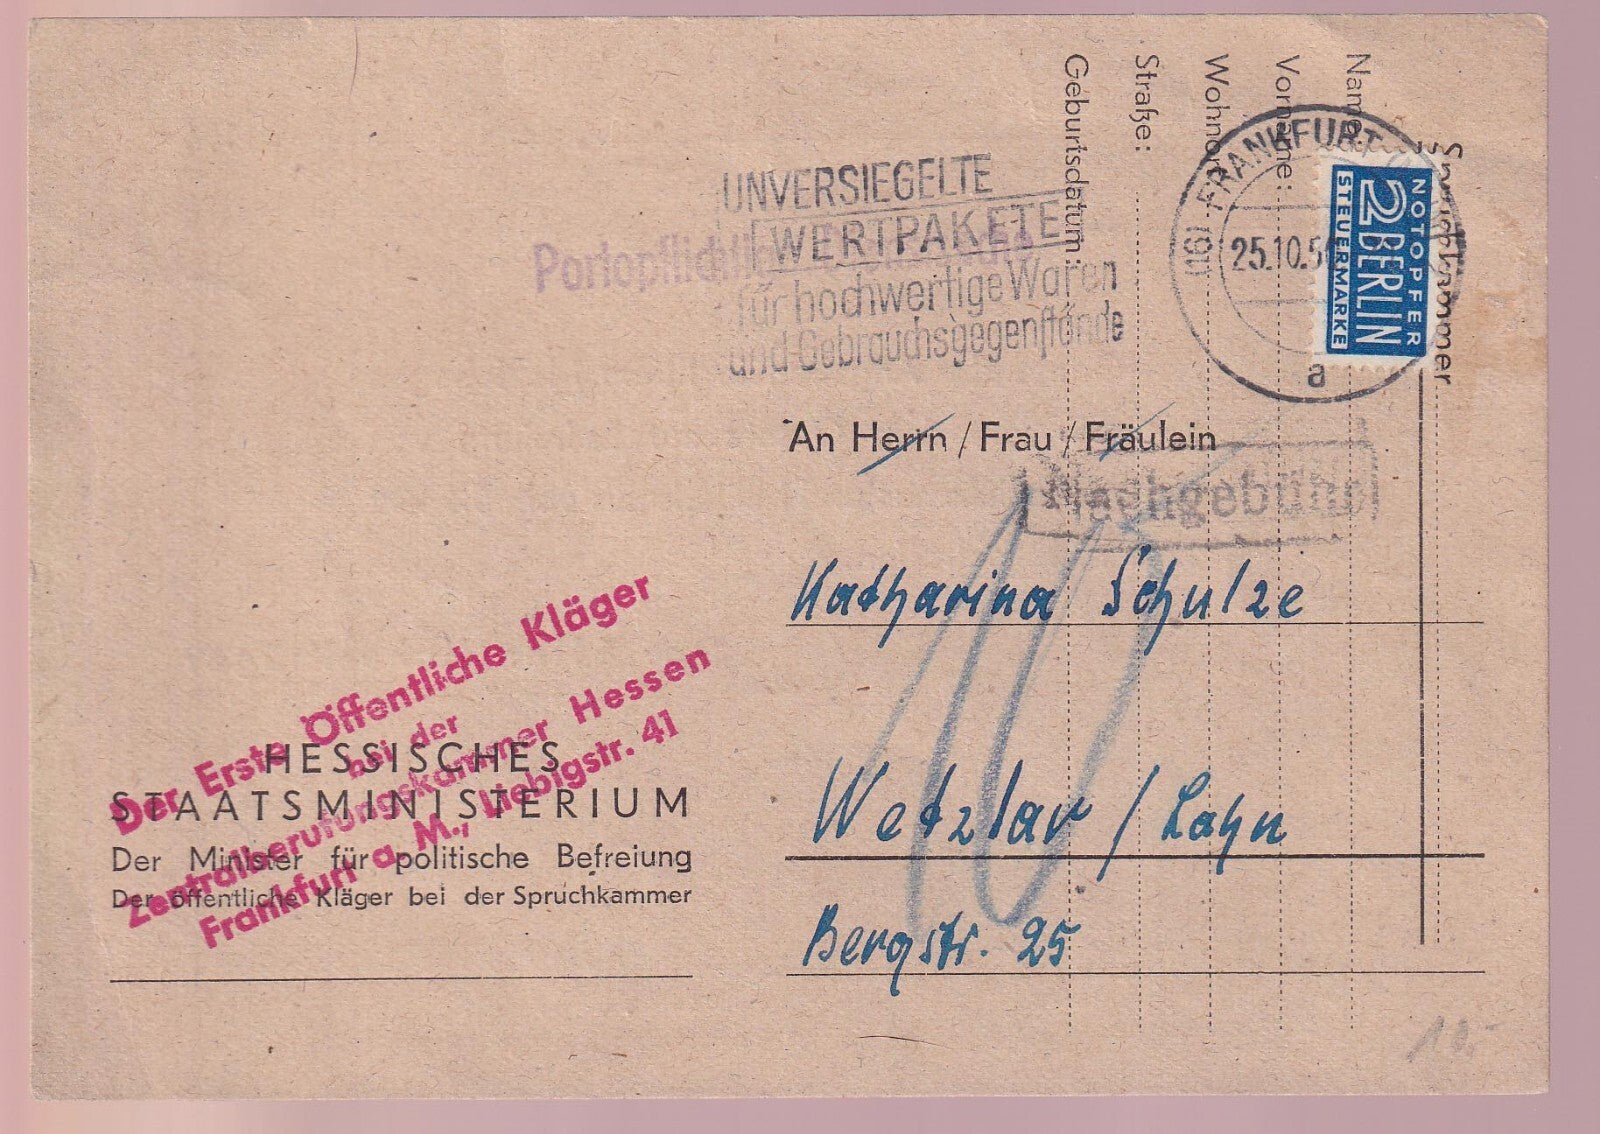 Name:
Vorname:
Wohnort:
Straße:
Geburtsdatum:
Spruchkammer
UNVERSIEGELTE
WERTPAKETE
für hochwertige Waren
und Gebrauchsgegenstände
Portopflichtige Dienstsache
(16) FRANKFURT
25.10.50
a
NOTOPFER
2 BERLIN
STEUERMARKE
An Herrn / Frau / Fräulein
Nachgebühr
10
Katharina Schulze
Wetzlar / Lahn
Bergstr. 25
Der Erste Öffentliche Kläger
bei der
Zentralberufungskammer Hessen
Frankfurt a. M., Liebigstr. 41
HESSISCHES
STAATSMINISTERIUM
Der Minister für politische Befreiung
Der öffentliche Kläger bei der Spruchkammer
10,-